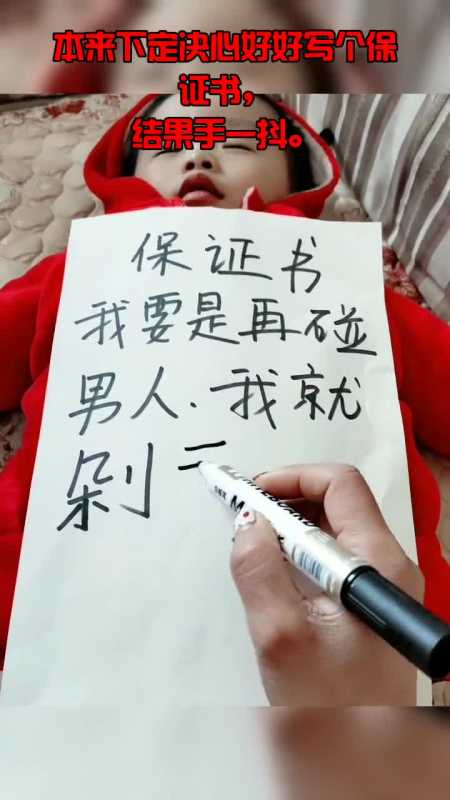 本来下定决心好好写个保
证书，
结果手一抖。
保证书
我要是再碰
男人.我就
剁二